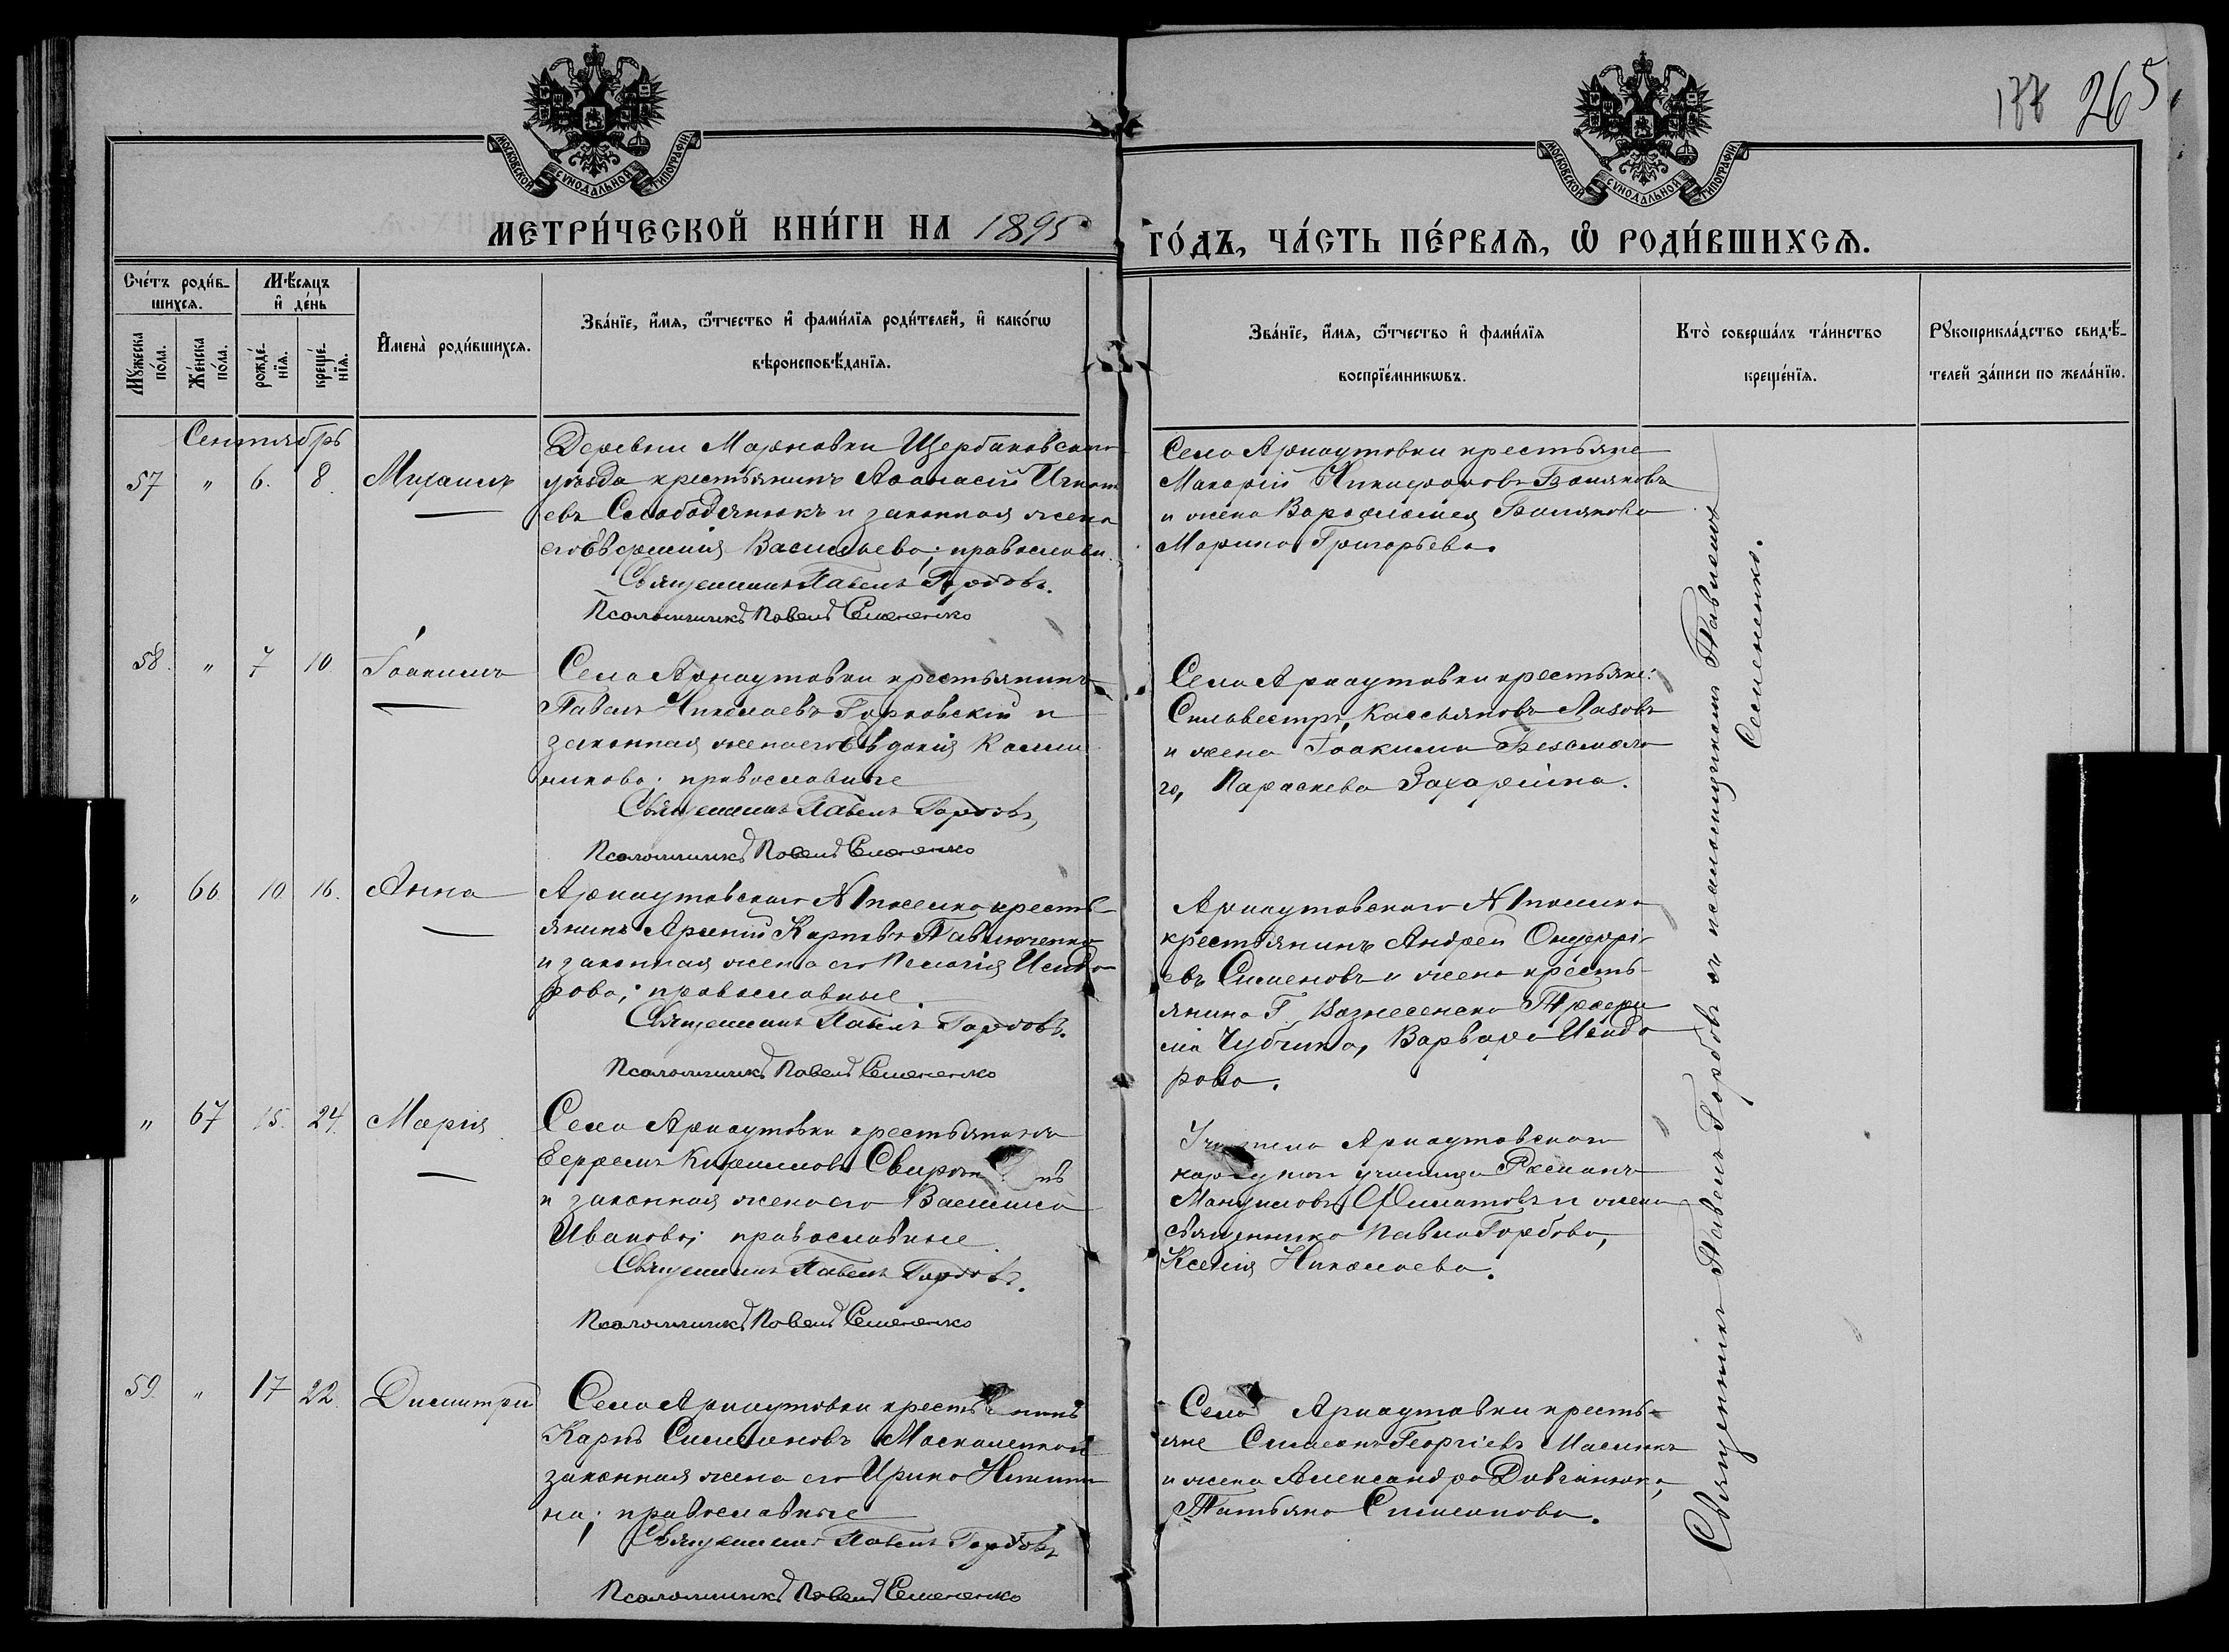 177 265
МОСКОВСКОЙ СѴНОДАЛЬНОЙ ТИПОГРАФІИ
МОСКОВСКОЙ СѴНОДАЛЬНОЙ ТИПОГРАФІИ
МЕТРИ́ЧЕСКОЙ КНИ́ГИ НА 1895
ГО́ДЪ, ЧА́СТЬ ПЕ́РВАѦ, Ѡ РОДИ́ВШИХСѦ.
Сче́тъ роди́в-
шихсѧ.
Мѣсѧцъ
и де́нь
Мꙋжеска по́ла.
Же́нска по́ла.
рожде́-
нїѧ.
креще́-
нїѧ.
Имена̀ роди́вшихсѧ.
Зва́нїе, и́мѧ, ѻ́тчество и фами́лїѧ роди́телей, и како́гѡ
вѣроисповѣ́данїѧ.
Зва́нїе, и́мѧ, ѻ́тчество и фами́лїѧ
воспрїе́мникѡвъ.
Кто̀ соверша́лъ та́инство
креще́нїѧ.
Рꙋкоприкла́дство свидѣ́-
телей за́писи по жела́нїю.
Сентябрь
57 " 6. 8. Михаилъ
Деревни Марновки Щербаковскаго
уѣзда крестьянинъ Аѳанасій Игнат
евъ Слободянюкъ и законная жена
его Васильева; православн.
Священникъ Павелъ Горбовъ.
Псаломщикъ Павелъ Семененко
Села Арнаутовки крестьяне
Макарій Никифоровъ Бошняковъ
и жена Варѳоломея Бошнякова
Марина Григорьева.
58. " 7 10 Іоакимъ
Села Арнаутовки крестьянинъ
Павелъ Николаевъ Горковскій и
законная жена его Евдокія Калли
никова; православные
Священникъ Павелъ Горбовъ,
Псаломщикъ Павелъ Семененко
Села Арнаутовки крестьяне:
Сильвестръ Кассьяновъ Лазовъ
и жена Іоакима Безсмало
го, Параскева Захаріина.
" 66 10. 16. Анна
Арнаутовскаго №1 поселка кресть
янинъ Арсеній Карповъ Павлюченко
и законная жена его Пелагія Исидо
рова; православные.
Священникъ Павелъ Горбовъ.
Псаломщикъ Павелъ Семененко
Арнаутовскаго №1 поселка
крестьянинъ Андрей Онуфрі
евъ Симеоновъ и жена кресть
янина Г. Вознесенска Трофи
ма Чубчика, Варвара Исидо
рова.
" 67 15. 24. Марія
Села Арнаутовки крестьянинъ
Ефремъ Кирилловъ
и законная жена его Васса
Иванова; православные.
Священникъ Павелъ Горбовъ.
Псаломщикъ Павелъ Семененко
Учитель Арнаутовскаго
народнаго училища Романъ
Мануиловъ Филатовъ и жена
священника Павла Горбова,
Ксенія Николаева.
59. " 17 22. Димитрій
Села Арнаутовки крестьянинъ
Карпъ Симеоновъ Москаленко и
законная жена его Ирина Никити
на; православные
Священникъ Павелъ Горбовъ
Псаломщикъ Павелъ Семененко
Села Арнаутовки кресть-
яне Симеонъ Георгіевъ Маслюкъ
и жена Александра Довганюка,
Татьяна Симеонова.
Священникъ Павелъ Горбовъ съ псаломщикомъ Павломъ
Семененко.